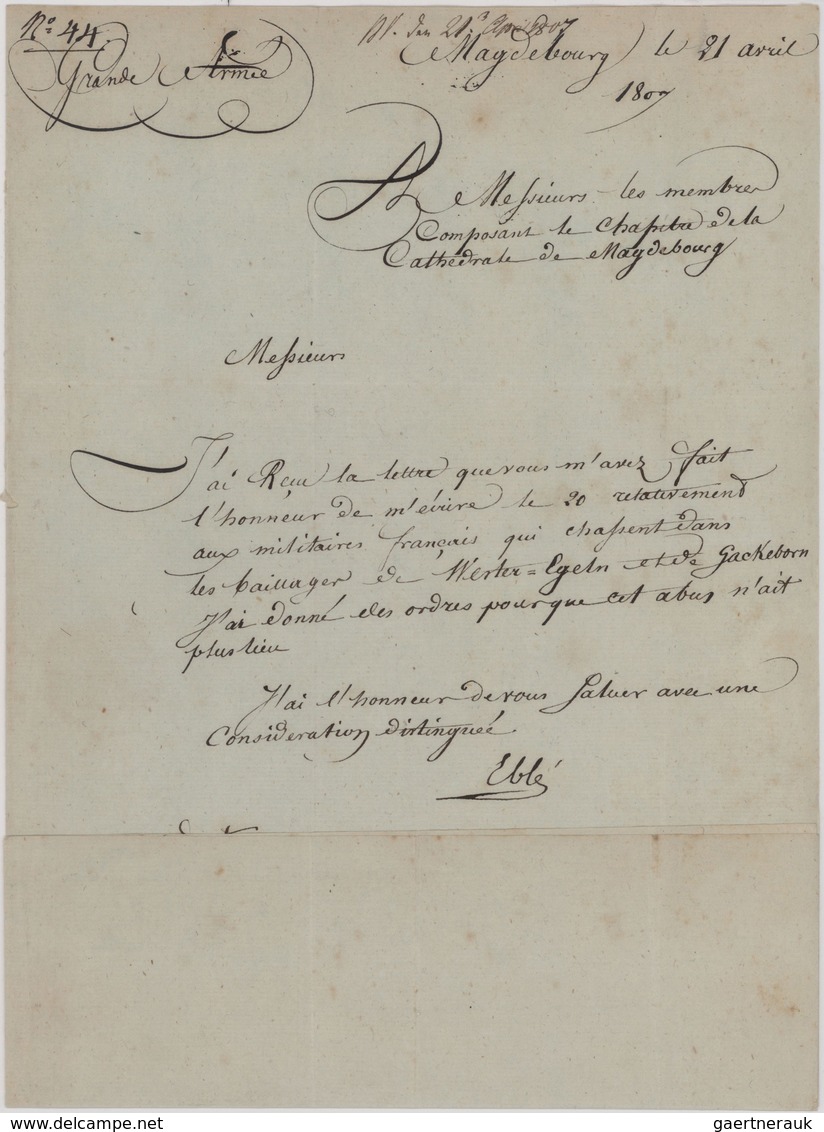 No. 44.
Grande Armée
pr. den 21. Apr. 1807
Magdebourg le 21 avril
1807
A Messieurs les membres
Composant le Chapitre de la
Cathédrale de Magdebourg
Messieurs
J'ai Reçu la lettre que vous m'avez fait
l'honneur de m'écrire le 20 relativement
aux militaires français qui chassent dans
les baillages de Wester=Egeln et de Gackeborn
J'ai donné des ordres pour que cet abus n'ait
plus lieu
J'ai l'honneur de vous Saluer avec une
Consideration distinguée
Eblé
gaertnerauk